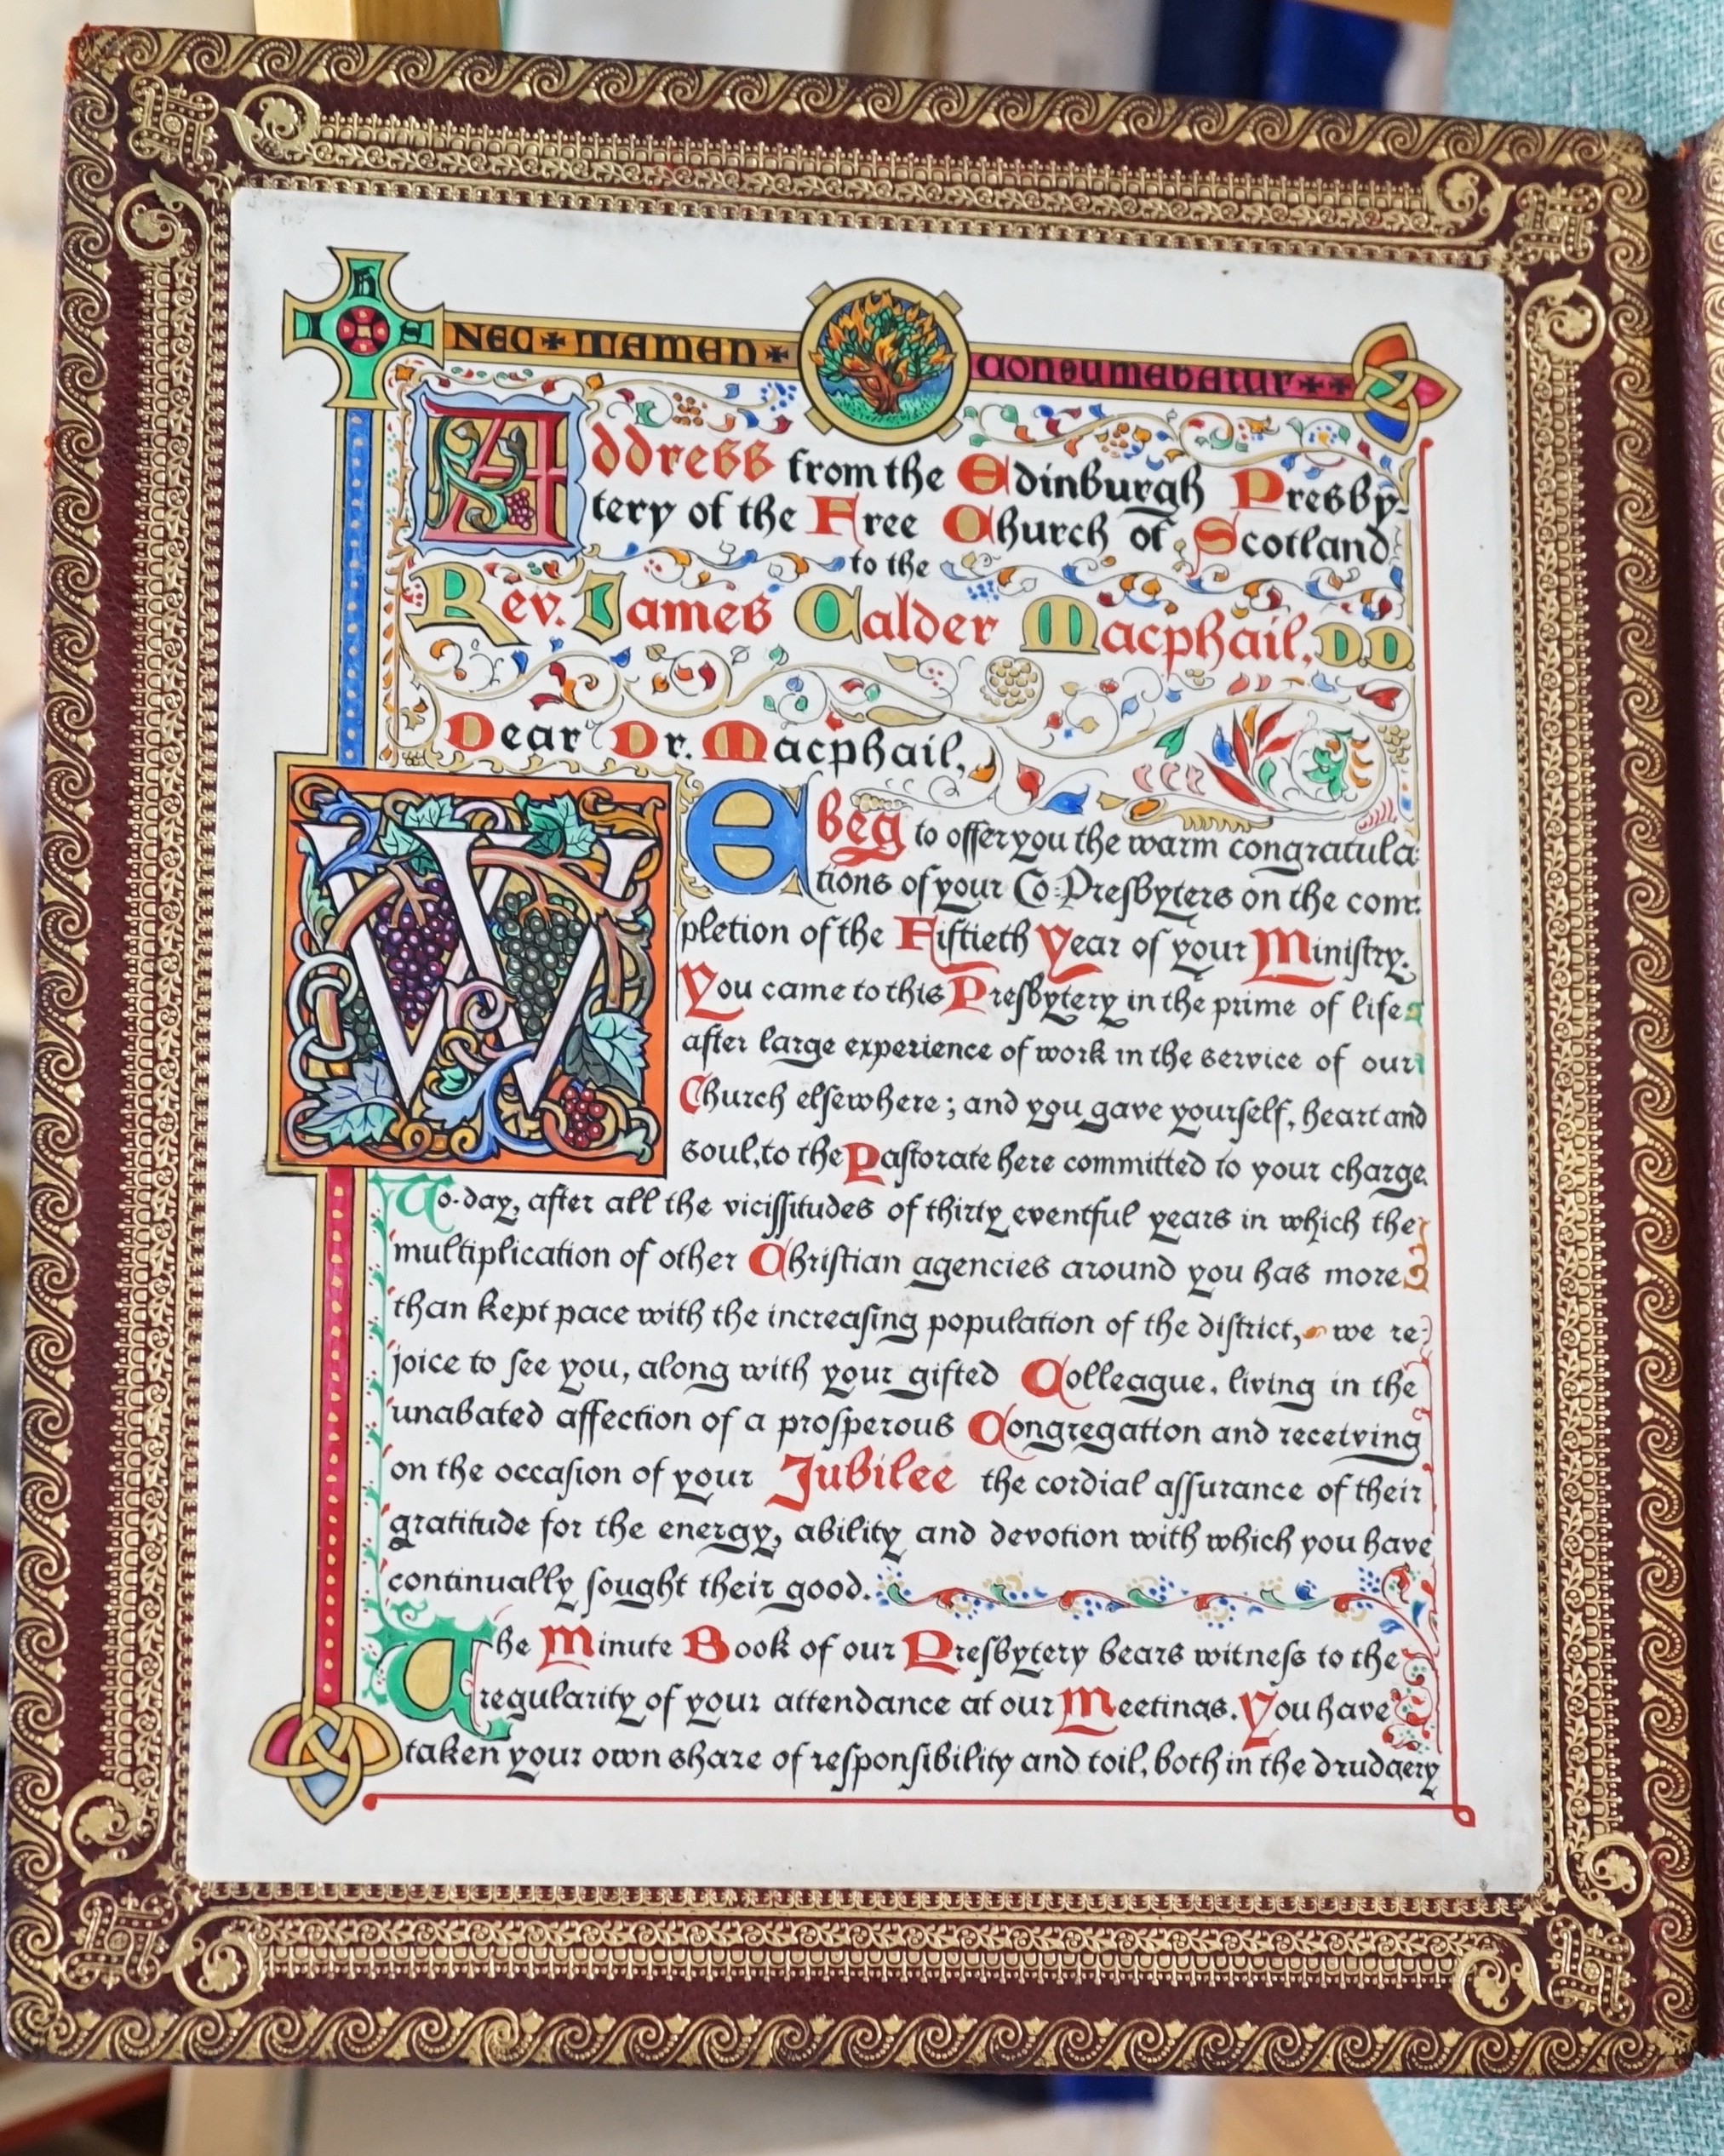 IHS NEC ✠ TAMEN ✠ CONSUMEBATUR ✠✠
Address from the Edinburgh Presby-
tery of the Free Church of Scotland
to the
Rev. James Calder Macphail, D.D.
Dear Dr. Macphail,
WE beg to offer you the warm congratula-
tions of your Co-Preſbyters on the com-
pletion of the Fiftieth Year of your Miniſtry.
You came to this Preſbytery in the prime of life
after large experience of work in the service of our
Church elſewhere; and you gave yourſelf, heart and
soul, to the Paſtorate here committed to your charge.
To-day, after all the viciſſitudes of thirty eventful years in which the
multiplication of other Chriſtian agencies around you has more
than kept pace with the increaſing population of the diſtrict, we re-
joice to ſee you, along with your gifted Colleague, living in the
unabated affection of a proſperous Congregation and receiving
on the occaſion of your Jubilee the cordial aſſurance of their
gratitude for the energy, ability and devotion with which you have
continually ſought their good.
The Minute Book of our Preſbytery bears witneſs to the
regularity of your attendance at our Meetings. You have
taken your own share of reſponſibility and toil, both in the drudgery